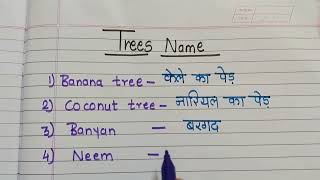 Trees Name
1) Banana tree - केले का पेड़
2) Coconut tree - नारियल का पेड़
3) Banyan - बरगद
4) Neem -